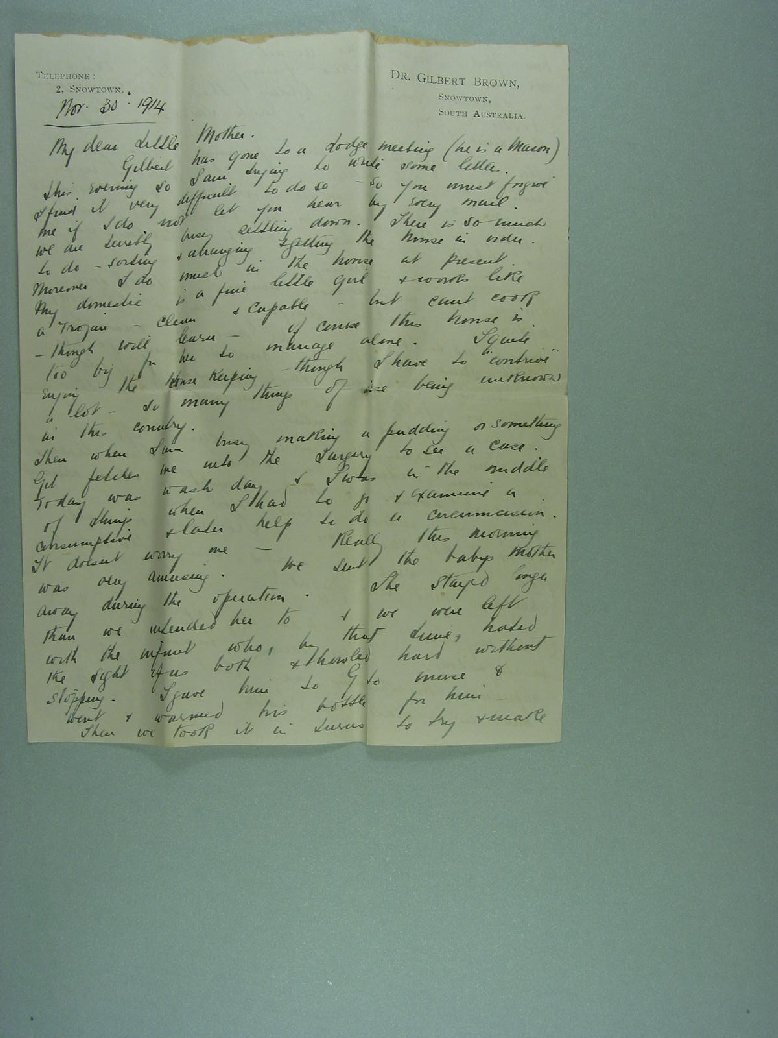 TELEPHONE:
2, SNOWTOWN.
DR. GILBERT BROWN,
SNOWTOWN,
SOUTH AUSTRALIA.
Nov. 30. 1914
My dear Little Mother.
Gilbert has gone to a Lodge meeting (he is a Mason)
this evening so I am trying to write some letters.
I find it very difficult to do so - so you must forgive
me if I do not let you hear by every mail.
we are terribly busy settling down. There is so much
to do - sorting & arranging & getting the house in order.
Moreover I do much in the house at present.
My domestic is a fine little girl & works like
a Trojan - clean & capable - but can't cook
- though will learn - of course this house is
too big for me to manage alone. I quite
enjoy the House Keeping - though I have to "contrive"
a lot - so many things of use being unknown
in this country.
Then when I am busy making a pudding or something
Gil fetches me into the Surgery to see a case.
Today was wash day & I was in the middle
of things when I had to go & examine a
consumptive & later help to do a circumcision.
It doesn't worry me - Really this morning
was very amusing. We sent the baby's mother
away during the operation. She stayed longer
than we intended her to & we were left
with the infant who, by that time, hated
the sight of us both & howled hard without
stopping. I gave him to G to nurse &
went & warmed his bottle for him
Then we took it in turns to try & make